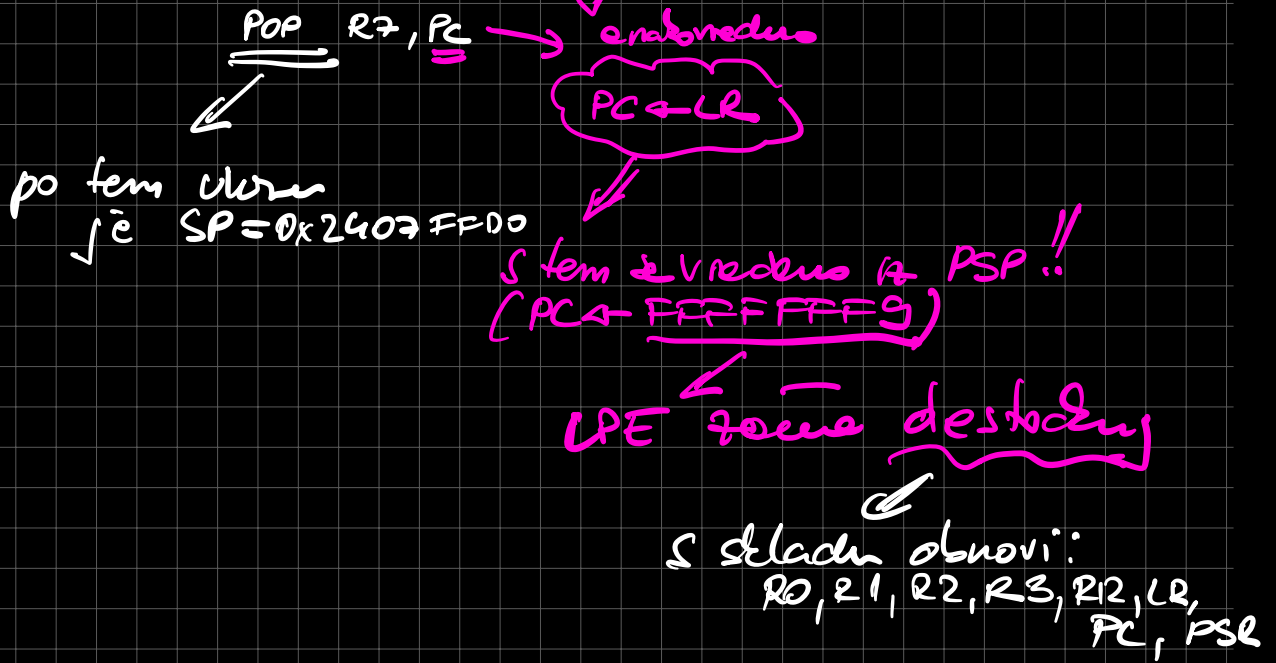 POP R7, PC
enakovredno
PC ← LR
po tem ukazu
je SP = 0x2407FFD0
s tem se vrednemo iz PSP!!
(PC ← FFFFFFF9)
CPE začne destacking
s sklada obnovi:
R0, R1, R2, R3, R12, LR,
PC, PSR